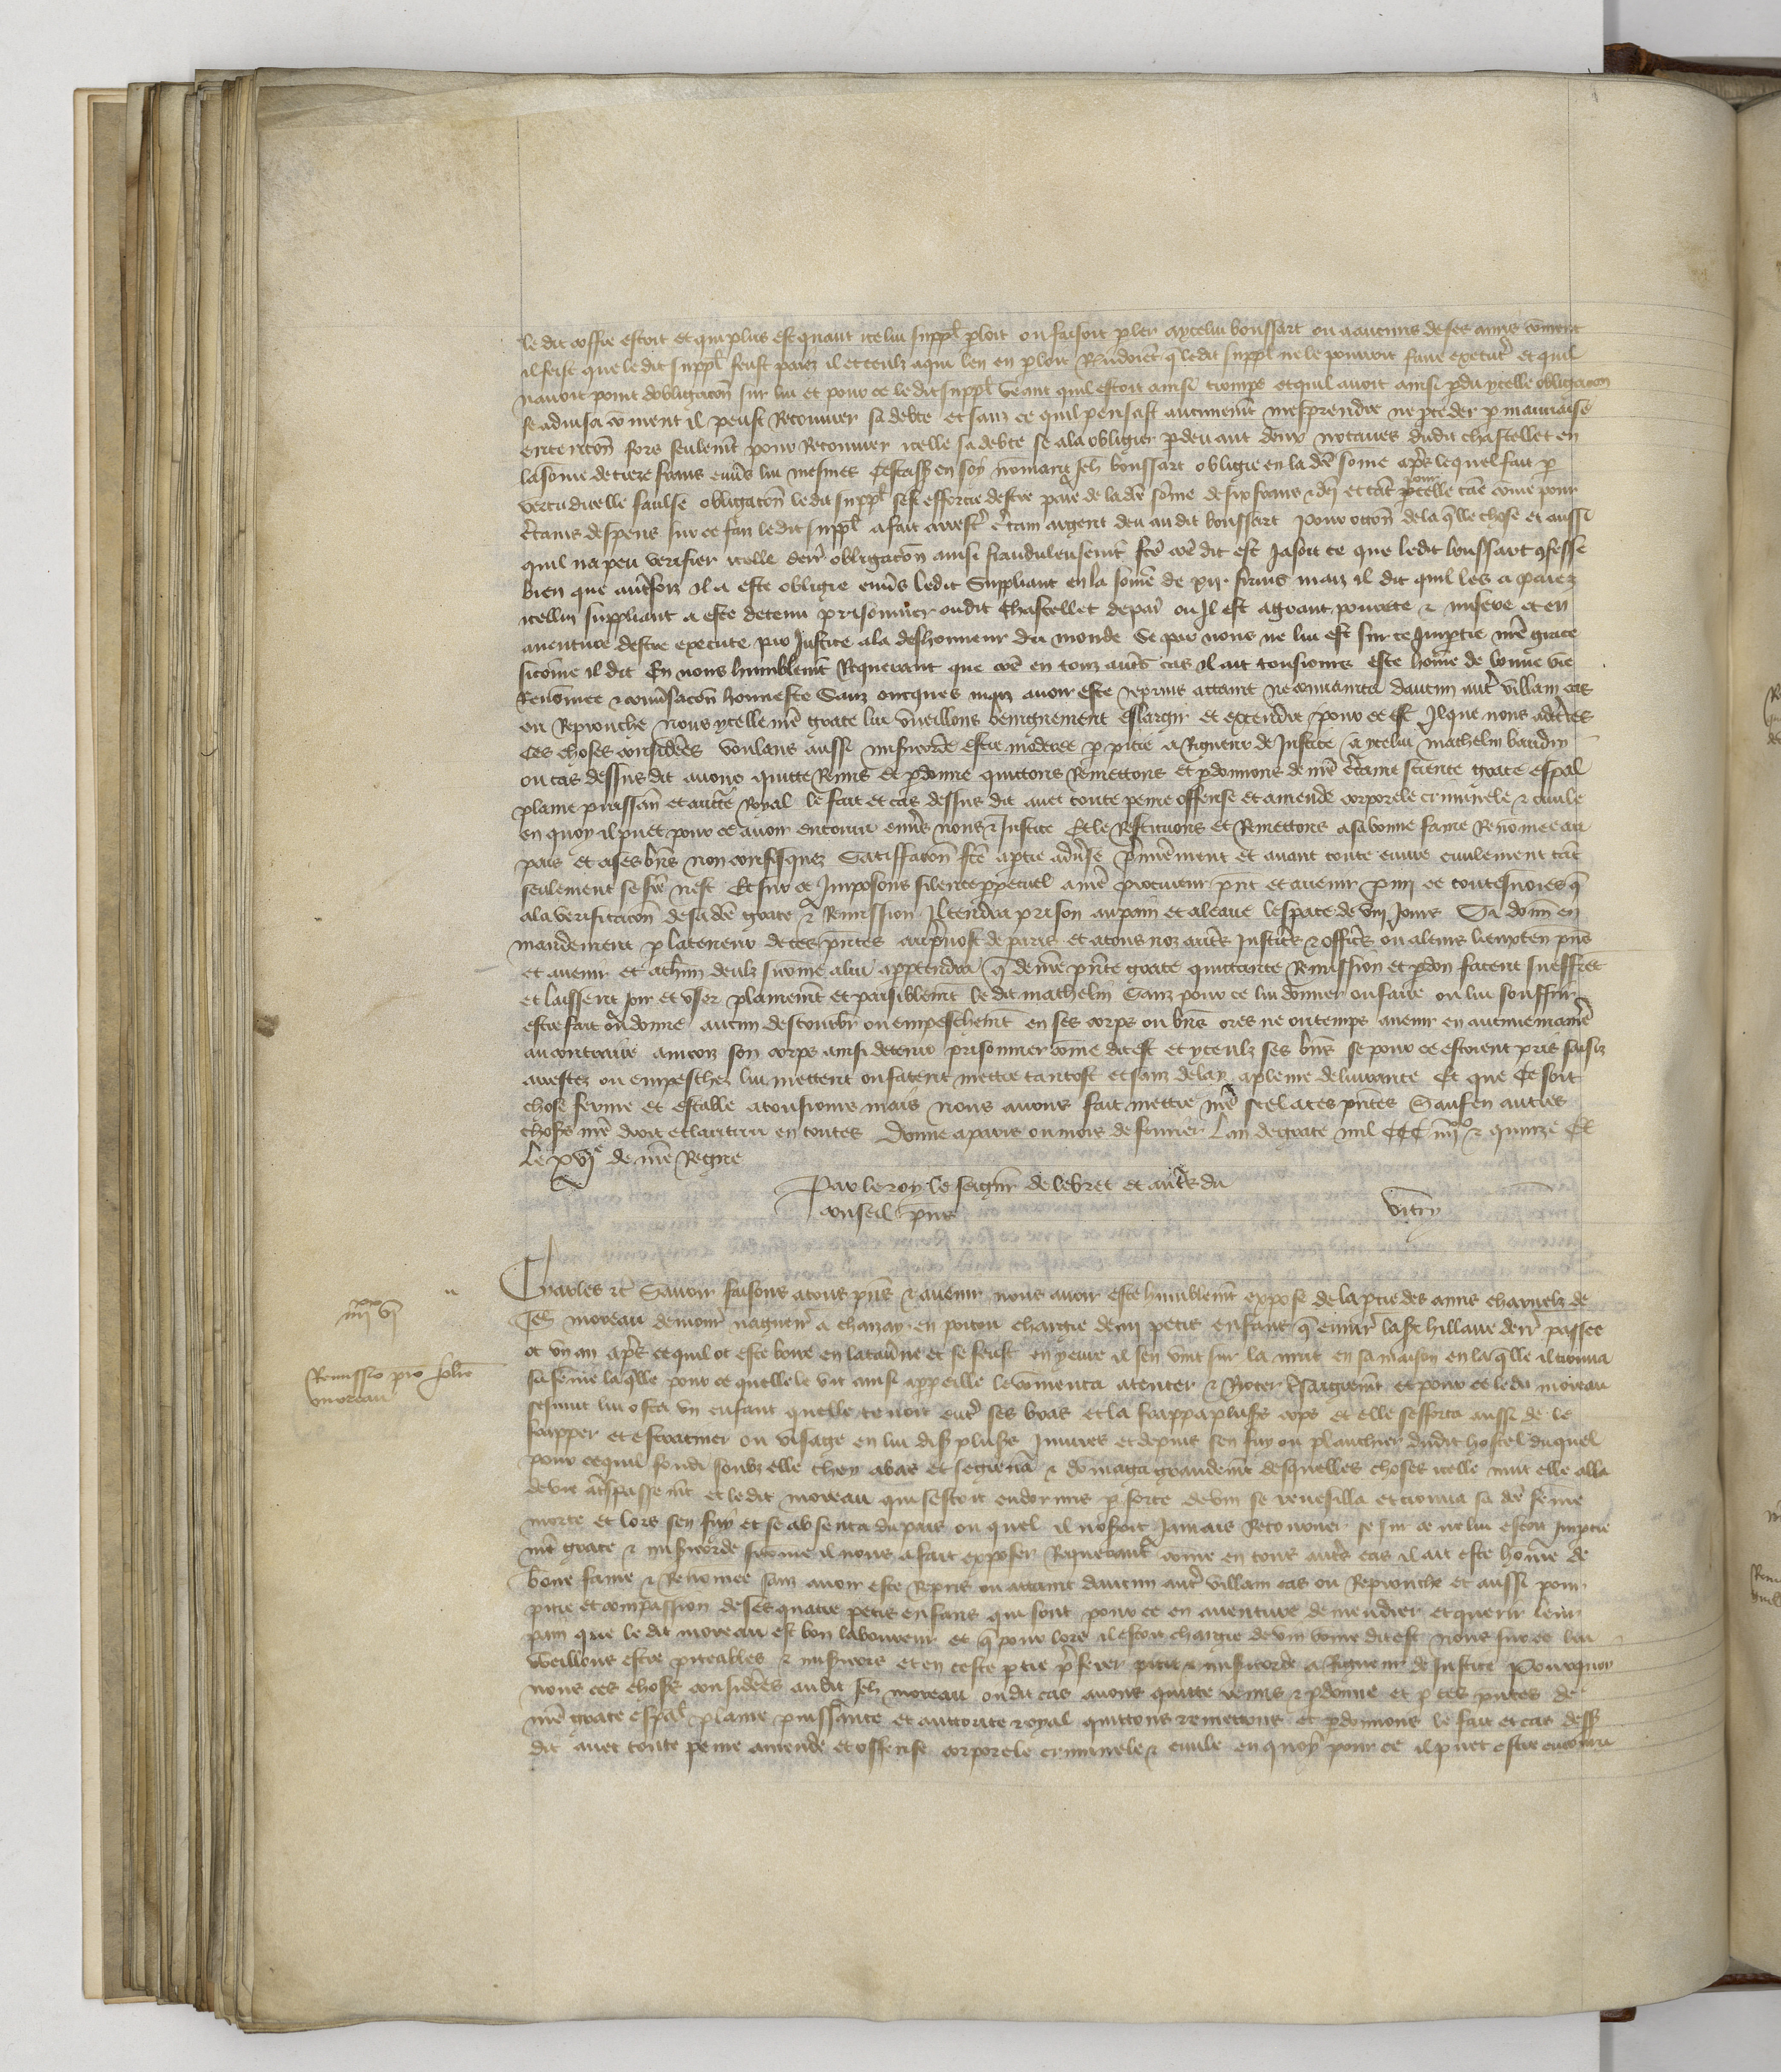 le dit coffre estoit et qui plus est quant icelui suppl ploit ou faisoit pler aycelui boussart ou aaucuns de ses amis coment
il feist que ledit suppl feust paiez il et ceulx aqui len en ploit Rndoiet q ledit suppl ne le pourroit faire execut et quil
navoit point dobligacon sur lui et pour ce ledit suppl veant quil estoit ainsi trompe et quil avoit ainsi pdu ycelle obligacon
se advisa coment il peust Recouvrer sa debte et sanz ce quil pensast aucunemt mesprendre ne pceder p mauvaise
entencon fors seulemt pour Recouvrer icelle sa debte se ala obligier pdevant deux notaires dudit chastellet en
la some de treze frans envs lui mesmes cestass en soy nomant Jeh boussart obligie en la de some aps lequel fait p
vertu dicelle faulse obligacon ledit suppl sest efforcie destre paie de lade some de six frans &amp; dei et tat pour icelle come pour
ctains despens sur ce fais ledit suppl a fait arrest ctain argent deu audit boussart pour occon de laqlle chose et aussi
quil na peu verifier icelle derr obligacon ainsi frauduleusemt fce coe dit est Jasoit ce que ledit boussart 9fesse
bien que autsfoiz il a este obligie envs ledit Suppliant en la some de xij frans maiz il dit quil les a paiez
icellui suppliant a este detenu prisonnier oudit chastellet de par ou Jl est agrant povrete &amp; misere et en
aventure destre execute par Justice ala deshonneur du monde Se par nous ne lui est sur ce Jmptie nre grace
sicome il dit En nous humblemt Requerant que coe en touz auts cas il ait tousiours este home de bonne vie
Renomee &amp; convsacon honneste Sanz oncques maiz avoir este repris attaint ne convaincu daucun aut villain cas
ou Reprouche nous ycelle nre grace lui vueillons benignement eslargir et extendre pour ce est Jl que nous adctes
ces choses considees voulans aussi misicorde estre moderee p pitie a Rigueur de Justice a ycelui mathelin baudin
ou cas dessus dit avons quitte Remis et pdonne quittons Remettons et pdonnons de nre ctaine science grace espal
plaine puissan et aucte Royal le fait et cas dessus dit avec toute peine offense et amende corporele criminele &amp; civile
en quoy il puet pour ce avoir encouru envs nous &amp; Justice Et le Restituons et Remettons a sa bonne fame Renomee au
pais et a ses bns non confisquez Satisfacon fce aptie advse pmierement et avant toute euvre civilement tat
seulement se fce nest Et sur ce Jmposons silence ppetuel a nre procureur pnt et avenir pmi ce toutesvoies q
ala verificacon de sade grace &amp; Remission Jl tendra prison au pain et aleaue lespace de viij Jours Si donn en
mandement p la teneur de ces pntes au pvost de paris et atous noz auts Justics &amp; offics ou aleurs lieuxten pns
et avenir et achun deulx sicome alui apptendra q de nre pnte grace quittance Remission et pdon facent sueffret
et laissent joir et user plainemt et paisiblemt ledit mathelin Sanz pour ce lui donner ou faire ou lui souffrir
estre fait ou donne aucun destourbr ou empeschemt en ses corps ou bns ores ne ou temps avenir en aucune maniere
au contraire aincoiz son corps ainsi detenu prisonnier come dit est et yceulx ses bns se pour ce estoient pris saisiz
arrestez ou empeschez lui mettent ou facent mettre tantost et sanz delay apleine delivrance Et que Ce soit
chose ferme et estable atousiours mais nous avons fait mettre nre seel aces pntes Sauf en autres
choses nre droit et lautrui en toutes Donne aparis ou mois de fevrier Lan de grace mil CCC iiijxx &amp; quinze Et
Le xvje de nre Regne
Par le roy le seignr de lebret et auts du
conseil pns Vitry
iiijxx vj
Charles &amp;c Savoir faisons atous pns &amp; avenir nous avoir este humblemt expose de la ptie des amis charnelz de
Jeh moreau demour nagueirs a chauzay en poitou chargie de iiij petis enfans q environ la st hillaire derr passee
Remissio pro Johe
moreau
ot un an aps ce quil ot este boire en la taverne et se feust enyvre il sen vint sur la nuit en sa maison en laqlle il trouva
sa feme laqlle pour ce quelle le vit ainsi appeille le comenca atencer &amp; Rioter tsaigremt et pour ce ledit moreau
sesmut lui osta un enfant quelle tenoit ent ses bras et la frappa pluss cops et elle sefforca aussi de le
frapper et esgratiner ou visage en lui dis pluss Jniures et depuis sen fuy ou planchier dudit hostel duquel
pour ce quil fondi soubz elle chey abas et se greva &amp; domaga grandemt desquelles choses icelle nuit elle alla
de vie atspassemt et ledit moreau qui sestoit endormis p force de vin se reveilla et trouva sa de feme
morte et lors sen fuy et se absenta du pais ou quel il noseroit Jamais Retourner se sur ce ne lui estoit Jmptie
nre grace &amp; misicorde sicome il nous a fait exposer Requerant come en tous auts cas il ait este home de
bone fame &amp; Renomee sanz avoir este Repris ou attaint daucun aut villain cas ou Reprouche et aussi pour
pitie et compassion de ses quatre petis enfans qui sont pour ce en aventure de mendier et querir leur
pain que ledit moreau est bon laboureur et q pour lors il estoit chargie de vin come dit est nous sur ce lui
vueillons estre piteables &amp; misicors et en ceste ptie pferer pitie &amp; misicorde a Rigueur de Justice Pourquoy
nous ces choses considees audit Jeh moreau oudit cas avons quitte remis &amp; pdonne et p ces pntes de
nre grace espal plaine puissance et auctorite royal quittons remettons et pdonnons le fait et cas dess
dit avec toute peine amende et offense corporele criminele &amp; civile en quoy pour ce il puet estre encouru